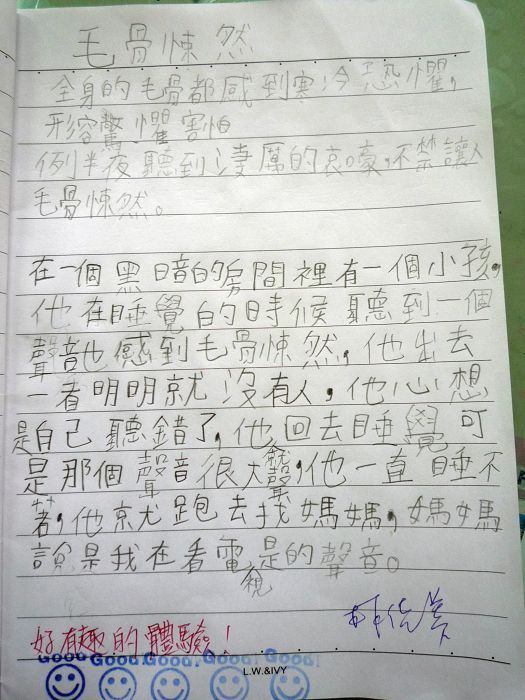 毛骨悚然
全身的毛骨都感到寒冷恐懼,
形容驚懼害怕
例半夜聽到淒厲的哀嚎,不禁讓人
毛骨悚然。
在一個黑暗的房間裡有一個小孩,
他在睡覺的時候聽到一個
聲音他感到毛骨悚然,他出去
一看明明就沒有人,他心想
是自己聽錯了,他回去睡覺可
是那個聲音很大聲,他一直睡不
著,他就跑去找媽媽,媽媽
說是我在看電視的聲音。
好有趣的體驗!
Good Good Good Good Good!
L.W.&IVY